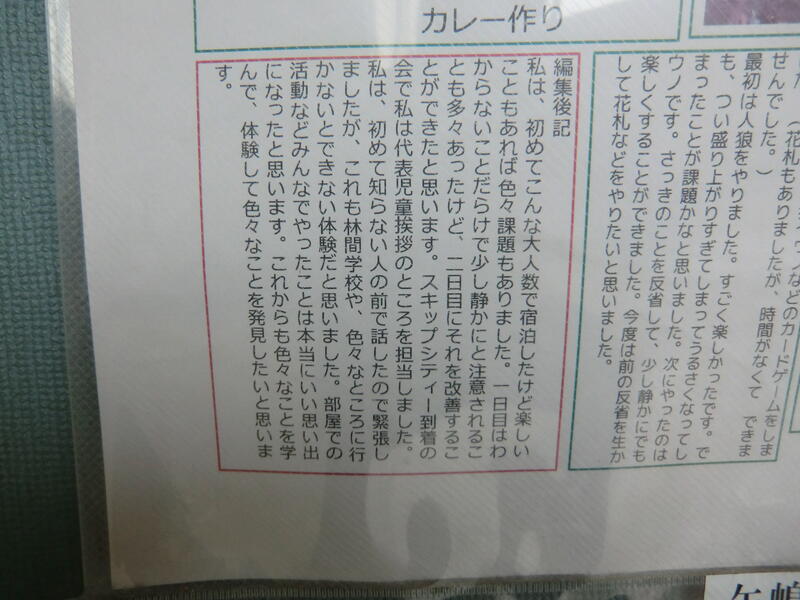 カレー作り
せんでした。)
最初は人狼をやりました。すごく楽しかったです。で
も、つい盛り上がりすぎてしまってうるさくなってし
まったことが課題かなと思いました。次にやったのは
ウノです。さっきのことを反省して、少し静かにでも
楽しくすることができました。今度は前の反省を生か
して花札などをやりたいと思いました。
編集後記
私は、初めてこんな大人数で宿泊したけど楽しい
こともあれば色々課題もありました。一日目はわ
からないことだらけで少し静かにと注意されるこ
とも多々あったけど、二日目にそれを改善するこ
とができたと思います。スキップシティー到着の
会で私は代表児童挨拶のところを担当しました。
私は、初めて知らない人の前で話したので緊張し
ましたが、これも林間学校や、色々なところに行
かないとできない体験だと思いました。部屋での
活動などみんなでやったことは本当にいい思い出
になったと思います。これからも色々なことを学
んで、体験して色々なことを発見したいと思いま
す。